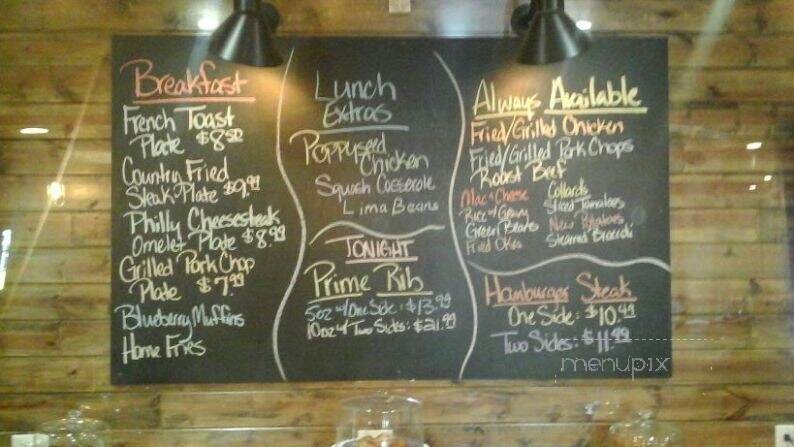 Breakfast
French Toast
Plate $8.50
Country Fried
Steak Plate $9.99
Philly Cheesesteak
Omelet Plate $8.99
Grilled Pork Chop
Plate $7.99
Blueberry Muffins
Home Fries
Lunch
Extras
Poppyseed
Chicken
Squash Casserole
Lima Beans
TONIGHT
Prime Rib
5oz w/ One Side: $13.99
10oz w/ Two Sides: $21.99
Always Available
Fried/Grilled Chicken
Fried/Grilled Pork Chops
Roast Beef
Mac & Cheese
Rice & Gravy
Green Beans
Fried Okra
Collards
Sliced Tomatoes
New Potatoes
Steamed Broccoli
Hamburger Steak
One Side: $10.49
Two Sides: $11.99
menupix